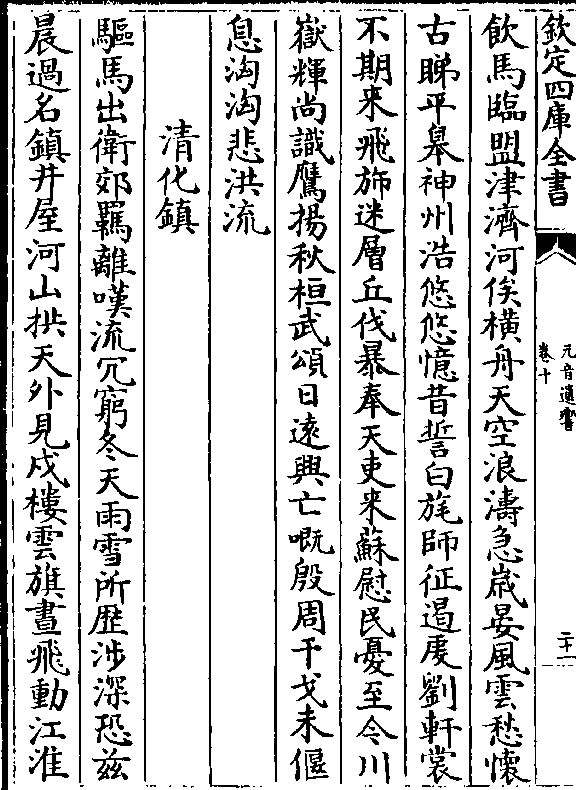 欽定四庫全書
元音遺響
卷十
二十一
飲馬臨盟津濟河俟橫舟天空浪濤急嵗晏風雲愁懐
古睇平皋神州浩悠悠憶昔誓白旄師征遏虔劉軒裳
不期來飛斾迷層丘伐暴奉天吏來蘇慰民憂至今川
嶽輝尚識鷹揚秋桓武頌日遠興亡嘅殷周干戈未偃
息洶洶悲洪流
清化鎮
驅馬出衛郊羈離嘆流冗窮冬天雨雪所歴涉深恐兹
晨過名鎮井屋河山拱天外見戍樓雲旗晝飛動江淮